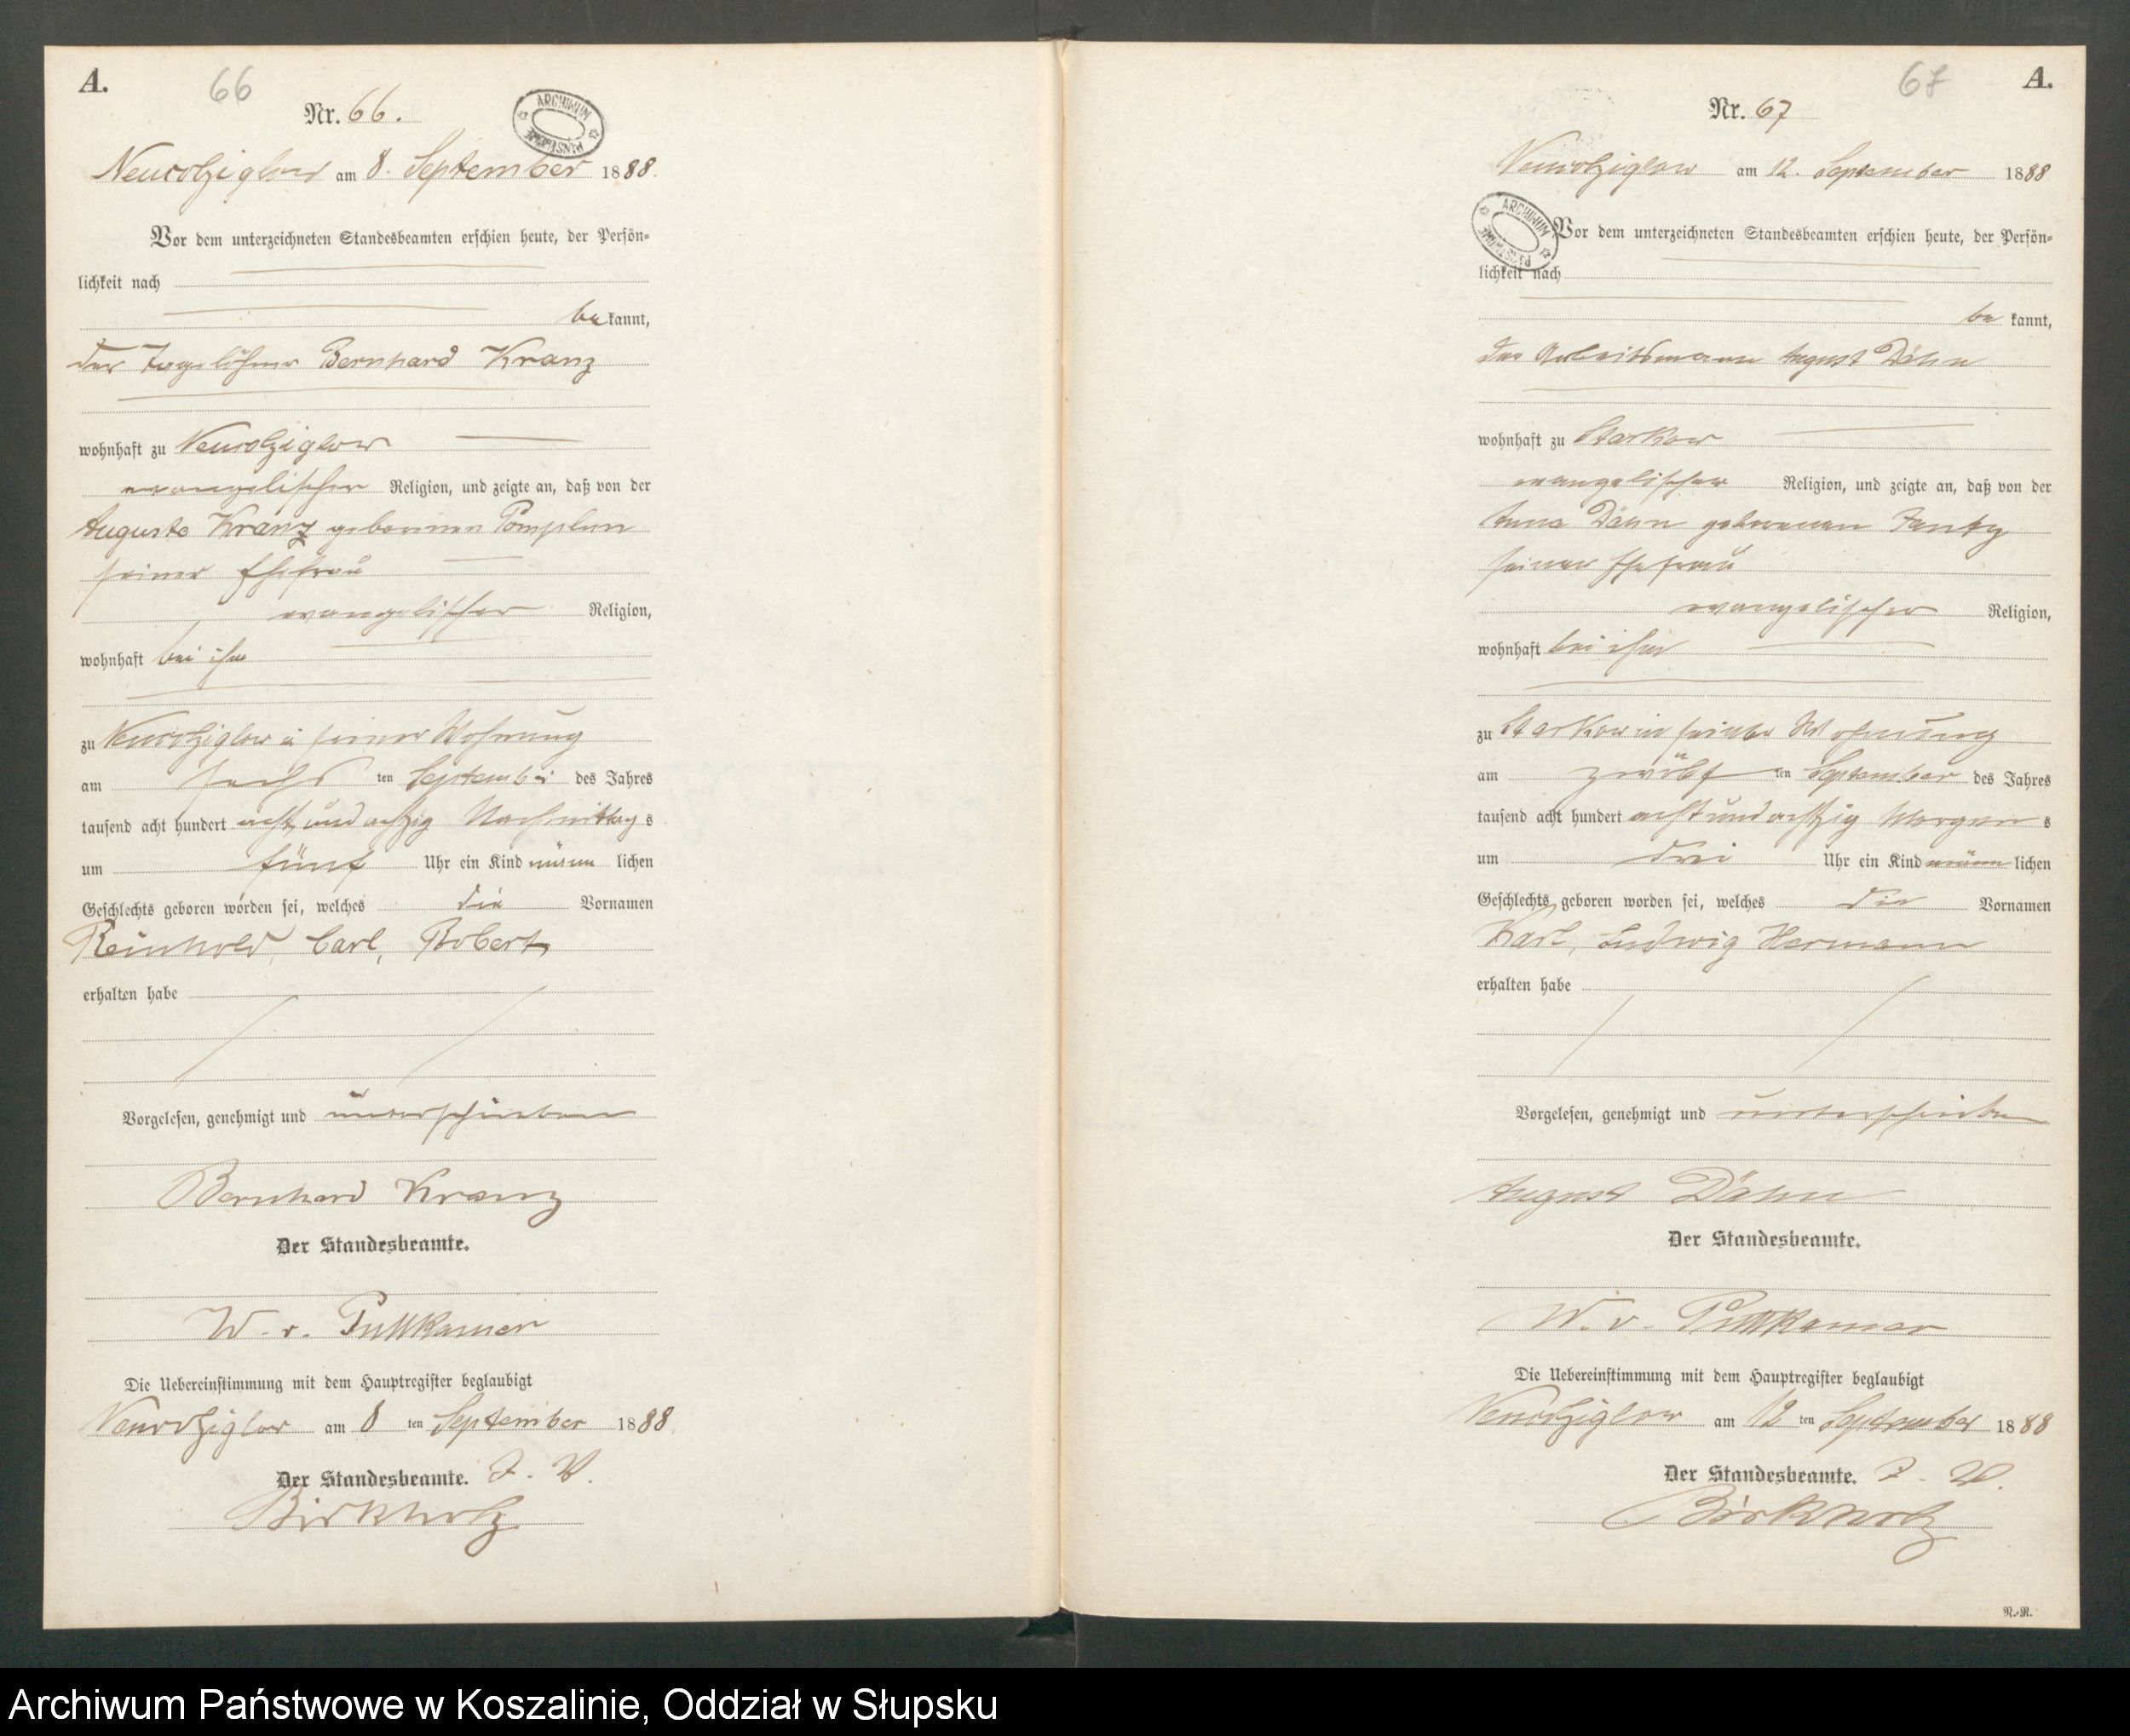 A.
66
Nr. 66.
ARCHIWUM PAŃSTWOWE
Neukolziglow am 8. September 1888.
Vor dem unterzeichneten Standesbeamten erschien heute, der Persön-
lichkeit nach
be kannt,
der Tagelöhner Bernhard Kranz
wohnhaft zu Neukolziglow
evangelischer Religion, und zeigte an, daß von der
Auguste Kranz geborenen Pomplun
seiner Ehefrau
evangelischer Religion,
wohnhaft bei ihm
zu Neukolziglow in seiner Wohnung
am sechs ten September des Jahres
tausend acht hundert acht und achtzig Nachmittag s
um fünf Uhr ein Kind männ lichen
Geschlechts geboren worden sei, welches die Vornamen
Reinhold, Carl, Robert
erhalten habe
Vorgelesen, genehmigt und unterschrieben
Bernhard Kranz
Der Standesbeamte.
W. v. Puttkamer
Die Uebereinstimmung mit dem Hauptregister beglaubigt
Neukolziglow am 8 ten September 1888.
Der Standesbeamte. I. V.
Birkholz
67
A.
Nr. 67
Neukolziglow am 12. September 1888
ARCHIWUM PAŃSTWOWE
Vor dem unterzeichneten Standesbeamten erschien heute, der Persön-
lichkeit nach
be kannt,
der Arbeitsmann August Dähn
wohnhaft zu Starkow
evangelischer Religion, und zeigte an, daß von der
Anna Dähn geborenen
seiner Ehefrau
evangelischer Religion,
wohnhaft bei ihm
zu Starkow in seiner Wohnung
am zwölf ten September des Jahres
tausend acht hundert acht und achtzig Morgen s
um drei Uhr ein Kind männ lichen
Geschlechts geboren worden sei, welches die Vornamen
Karl, Ludwig Hermann
erhalten habe
Vorgelesen, genehmigt und unterschrieben
August Dähn
Der Standesbeamte.
W. v. Puttkamer
Die Uebereinstimmung mit dem Hauptregister beglaubigt
Neukolziglow am 12 ten September 1888
Der Standesbeamte. I. V.
Birkholz
N.-N.
Archiwum Państwowe w Koszalinie, Oddział w Słupsku